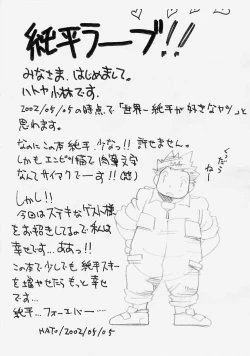 純平ラーブ!!
みなさま、はじめまして。
ハトヤ小林です。
2002/05/05の時点で「世界一純平が好きなヤツ」と
思われます。
なのにこの本純平、少なっ!!許せません。
しかもエンピツ描で肉筆文字
なんてサイアクでーす!!(怒)
しかし!!
今回はステキなゲスト様
をお招きしてるので私は
幸せです…ああっ!!
この本で少しでも純平スキー
を増やせたらもっと幸せ
です…
純平…フォーエバー……
HATO/2002/05/05
ぐったら
ねー